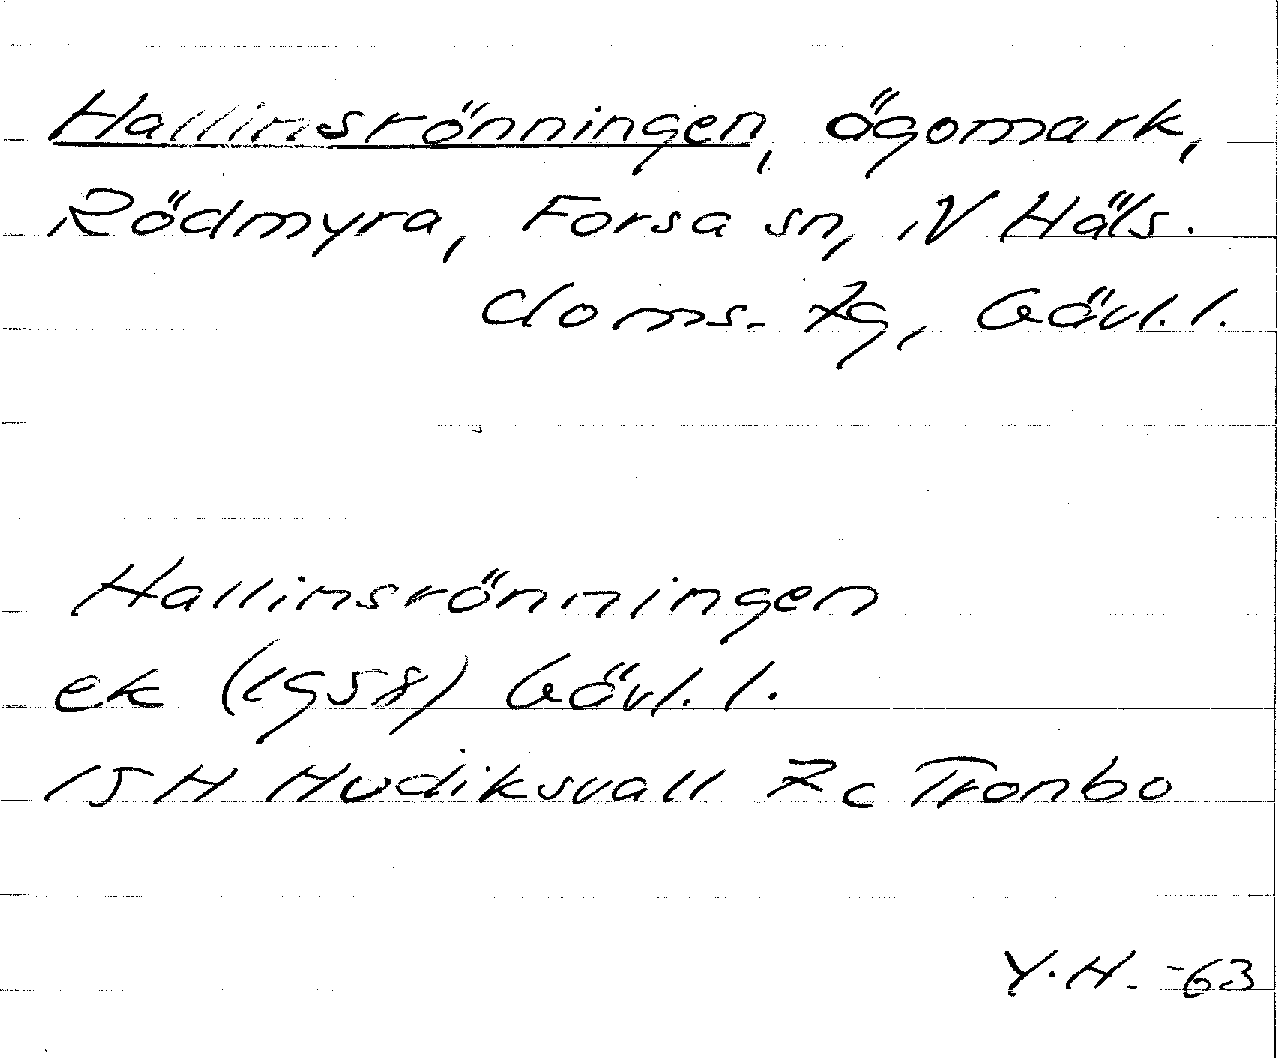 Hallinsrönningen, ägomark,
Rödmyra, Forsa sn, N Häls.
doms. 7g, Gävl.l.
Hallinsrönningen
ek (1958) Gävl.l.
15H Hudiksvall 7c Tronbo
Y.H. -63